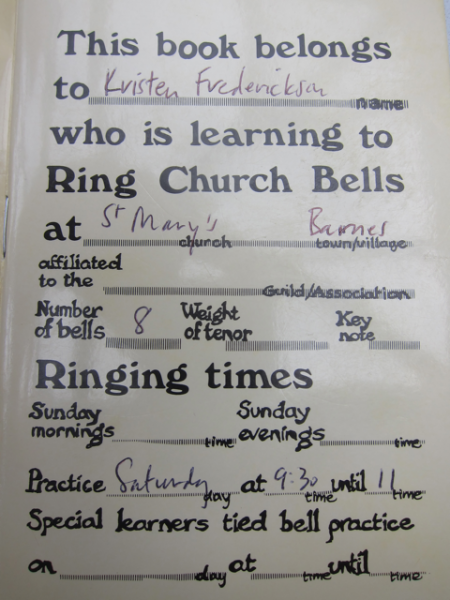 This book belongs
to Kristen Frederickson name
who is learning to
Ring Church Bells
at St Mary's church Barnes town/village
affiliated
to the Guild/Association
Number of bells 8 Weight of tenor Key note
Ringing times
Sunday mornings time Sunday evenings time
Practice Saturday day at 9:30 time until 11 time
Special learners tied bell practice
on day at time until time